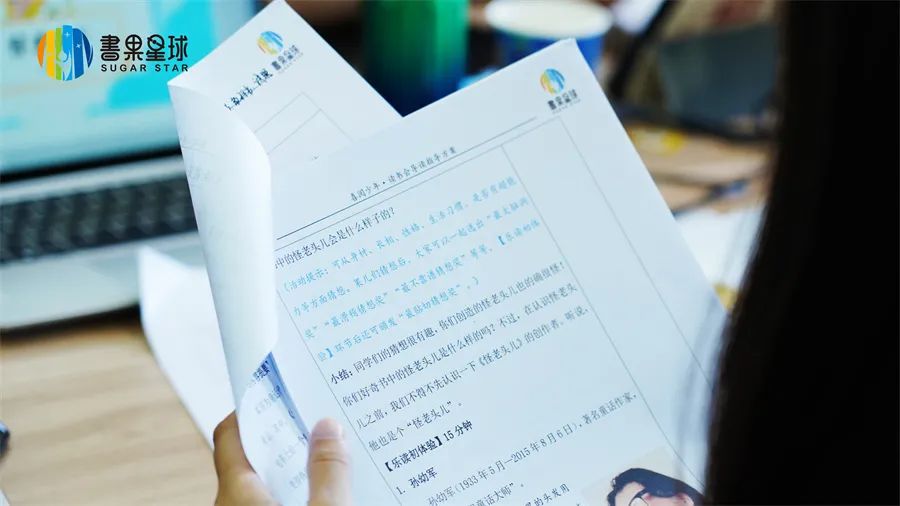 書果星球
SUGAR STAR
書果星球
書果星球
喜阅少年·读书会导读指导方案
中的怪老头儿会是什么样子的？
（活动提示：可从身材、长相、性格、生活习惯、是否有超能
力等方面猜想。果儿们猜想后，大家可以一起选出“最大脑洞
奖”“最滑稽猜想奖”“最不靠谱猜想奖”等等，【乐读初体
验】环节后还可颁发“最贴切猜想奖”。）
小结：同学们的猜想很有趣，你们创造的怪老头儿也的确很怪！
你们好奇书中的怪老头儿是什么样的吗？不过，在认识怪老头
儿之前，我们不得不先认识一下《怪老头儿》的创作者。听说，
他也是个“怪老头儿”。
【乐读初体验】15分钟
1. 孙幼军
孙幼军（1933年5月—2015年8月6日），著名童话作家，
童话大师”。
的头发用